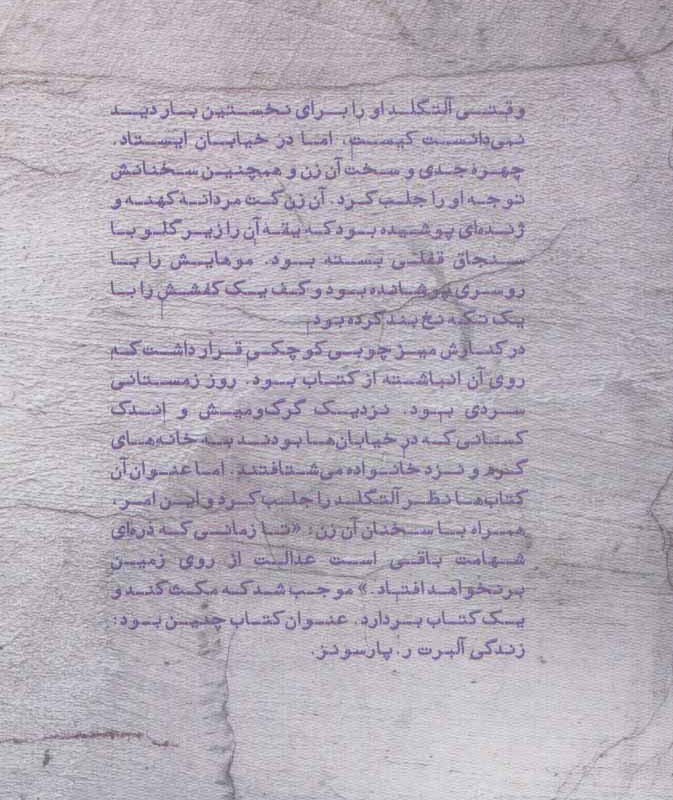 وقتی آلتگلد او را برای نخستین بار دید
نمی‌دانست کیست، اما در خیابان ایستاد.
چهره جدی و سخت آن زن و همچنین سخنانش
توجه او را جلب کرد. آن زن کت مردانه کهنه و
ژنده‌ای پوشیده بود که یقه آن را زیر گلو با
سنجاق قفلی بسته بود. موهایش را با
روسری پوشانده بود و کف یک کفشش را با
یک تکه نخ بند کرده بود.
در کنارش میز چوبی کوچکی قرار داشت که
روی آن انباشته از کتاب بود. روز زمستانی
سردی بود. نزدیک گرگ‌ومیش و اندک
کسانی که در خیابان‌ها بودند به خانه‌های
گرم و نزد خانواده می‌شتافتند. اما عنوان آن
کتاب‌ها نظر آلتگلد را جلب کرد و این امر،
همراه با سخنان آن زن: «تا زمانی که ذره‌ای
شهامت باقی است عدالت از روی زمین
برنخواهد افتاد.» موجب شد که مکث کند و
یک کتاب بردارد. عنوان کتاب چنین بود:
زندگی آلبرت ر. پارسونز.